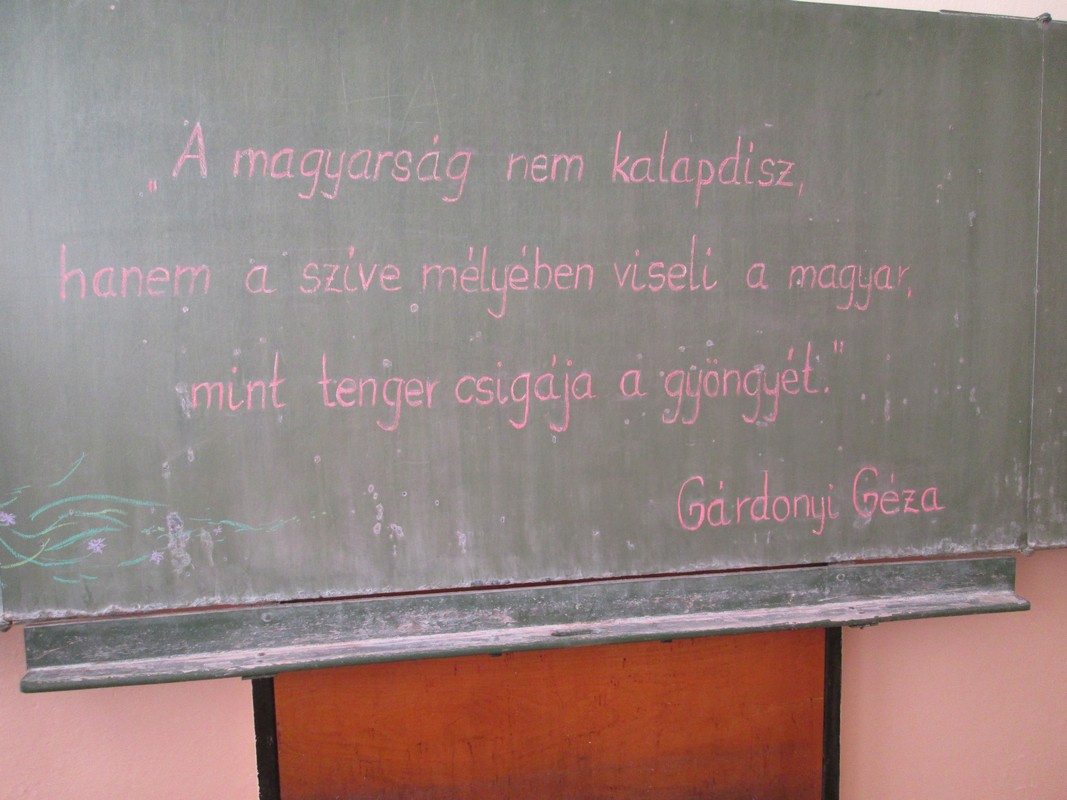 „A magyarság nem kalapdisz,
hanem a szíve mélyében viseli a magyar,
mint tenger csigája a gyöngyét."
Gárdonyi Géza